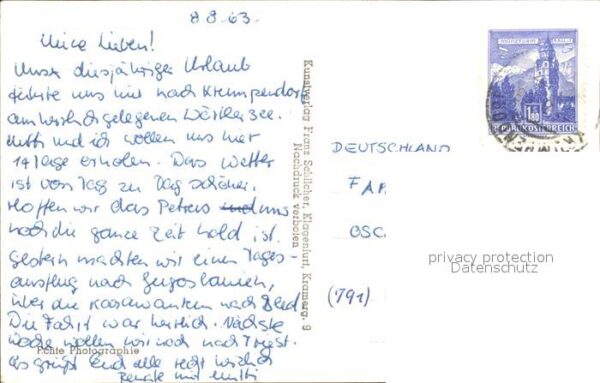 8.8.63.
Meine Lieben!
Unser diesjähriger Urlaub
führte uns nur nach Krumpendorf
am herrlich gelegenen Wörther See.
Mutti und ich wollen uns hier
14 Tage erholen. Das Wetter
ist von Tag zu Tag schöner.
Hoffen wir das Petrus uns
noch die ganze Zeit hold ist.
Gestern machten wir einen Tages-
ausflug nach Jugoslawien,
über die Karawanken nach Bled.
Die Fahrt war herrlich. Nächste
Woche wollen wir noch nach Triest.
Es grüßt Euch alle recht herzlich
Renate und Mutti
Echte Photographie
Kunstverlag Franz Schilcher, Klagenfurt, Kramerg. 9
Nachdruck verboten
MÜNZTURM HALL I.T.
S 1.80
REPUBLIK ÖSTERREICH
DEUTSCHLAND
FA
OSC
(791)
privacy protection
Datenschutz